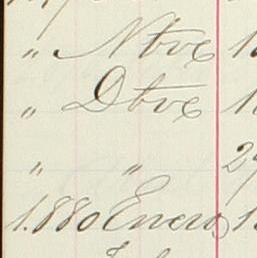 " Nbre
" Dbre
" "
1.880 Enero